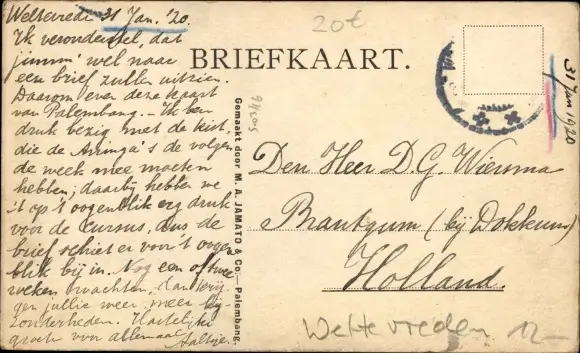 Weltevreden 31 Jan. '20.
Ik veronderstel, dat
jimm' wel naar
een brief zullen uitzien.
Daarom even deze kaart
van Palembang. — Ik ben
druk bezig met de kist,
die de Aninga's de volgen
de week mee moeten
hebben; daarbij hebben we
't op 't oogenblik erg druk
voor de cursus, dus de
brief schiet er voor 't oogen
blik bij in. Nog een of twee
weken wachten, dan krij
gen jullie weer meer bij-
zonderheden. Hartelijke
groete voor allemaal Aaltje.
20€
BRIEFKAART.
31 Jan 1920
50346
Gemaakt door M. A. JAMATO & Co., Palembang.
Den Heer D. G. Wiersma
Brantgum (bij Dokkum)
Holland.
Weltevreden 12-